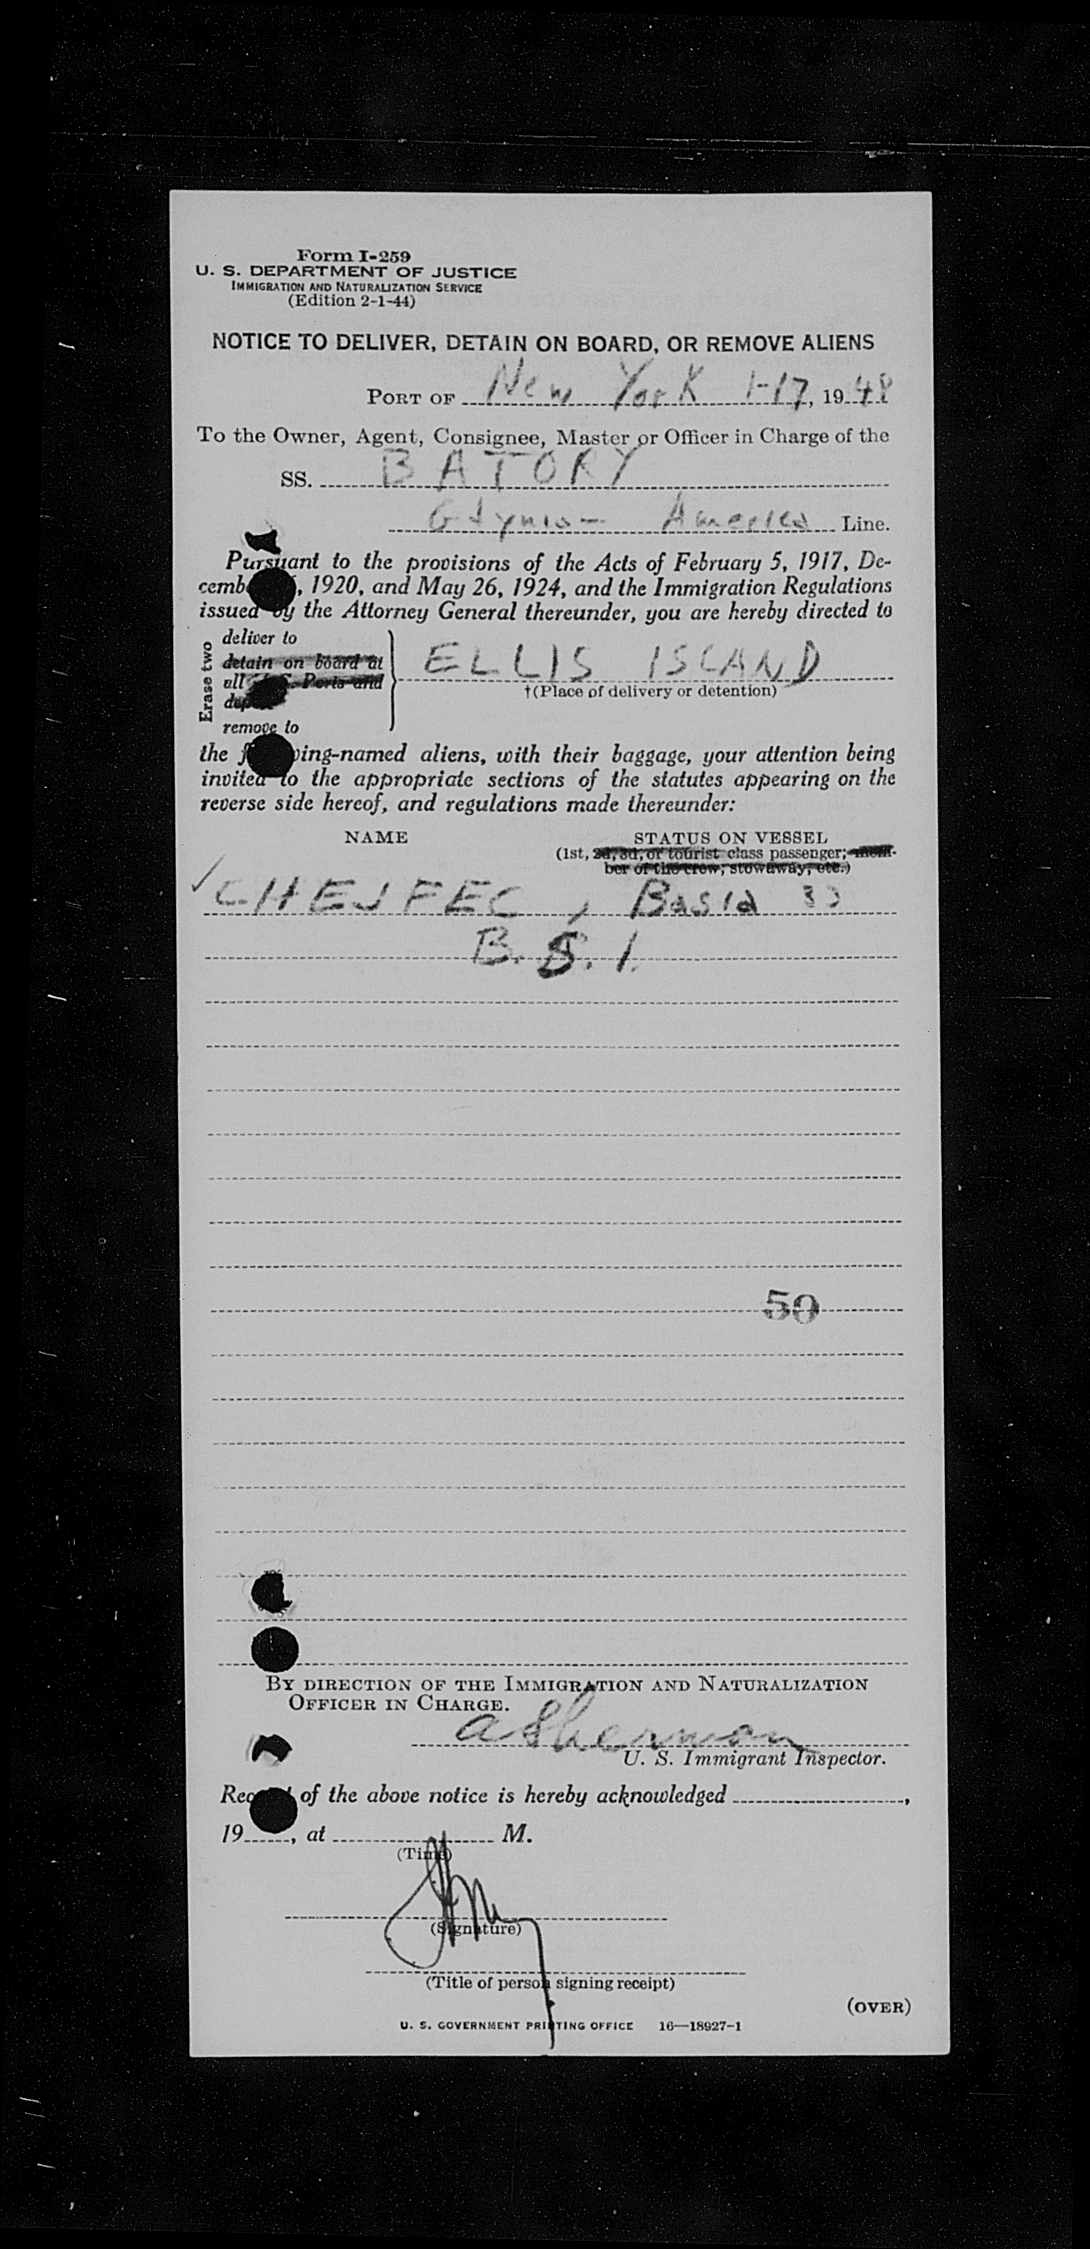 Form I-259
U. S. DEPARTMENT OF JUSTICE
IMMIGRATION AND NATURALIZATION SERVICE
(Edition 2-1-44)
NOTICE TO DELIVER, DETAIN ON BOARD, OR REMOVE ALIENS
PORT OF New York 1-17, 1948
To the Owner, Agent, Consignee, Master or Officer in Charge of the
SS. BATORY
Gdynia- America Line.
Pursuant to the provisions of the Acts of February 5, 1917, De-
cemb , 1920, and May 26, 1924, and the Immigration Regulations
issued by the Attorney General thereunder, you are hereby directed to
Erase two
deliver to
detain on board at
all U.S. Ports and
dep
remove to
ELLIS ISLAND
†(Place of delivery or detention)
the f wing-named aliens, with their baggage, your attention being
invited to the appropriate sections of the statutes appearing on the
reverse side hereof, and regulations made thereunder:
NAME STATUS ON VESSEL
(1st, 2d, 3d, or tourist class passenger; mem-
ber of the crew, stowaway, etc.)
✓ CHEJFEC, Basia 33
B.S.I.
50
BY DIRECTION OF THE IMMIGRATION AND NATURALIZATION
OFFICER IN CHARGE.
A Sherman
U. S. Immigrant Inspector.
Rec t of the above notice is hereby acknowledged ,
19 , at M.
(Time)
(Signature)
(Title of person signing receipt)
(OVER)
U. S. GOVERNMENT PRINTING OFFICE 16—18927-1